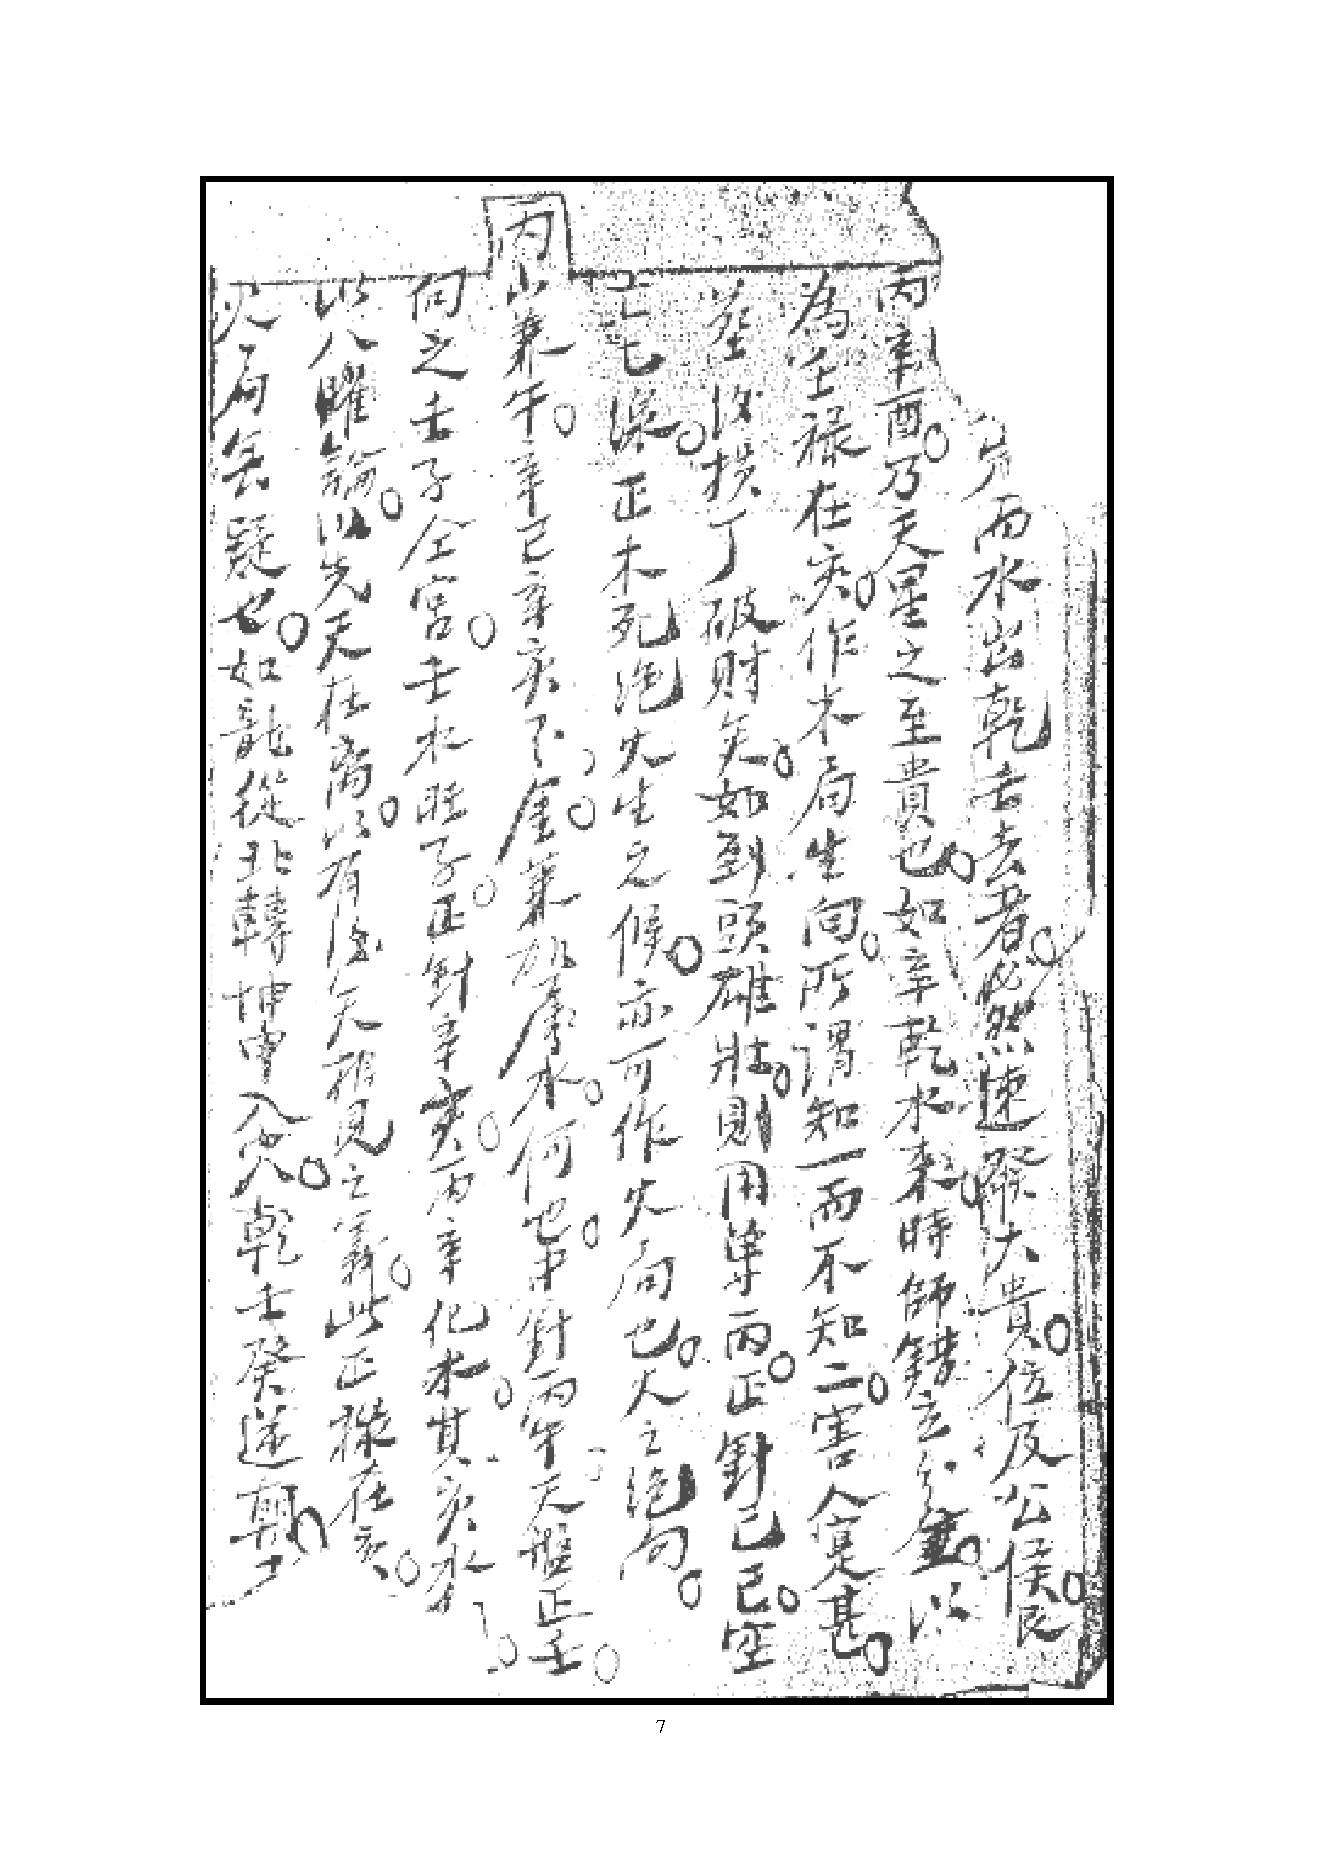 而水出乾去去者必然速發大貴位及公侯
丙辛酉乃天星之至貴也如辛乾水來時師錯立分金以
為壬祿在亥作木局生向所謂知一而不知二害人寔甚
葬後損丁破財矣如到頭雄壯則用單丙正針己巳空
亡七深正木死絕火生之候亦可作火局也人之絕向
丙山兼午辛巳辛亥下金兼水何也中針丙午天盤正壬
向之壬子仝宮壬水旺子正針辛亥丙辛化水其亥水
以八曜論以先天在离以有後天相見之義此正操在亥
火局无疑也如龍從北轉坤申入穴乾壬癸遞朝
7